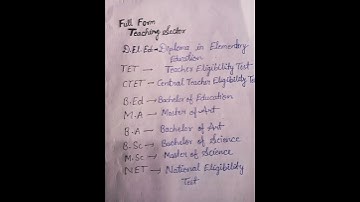 Full Form
Teaching Sector
D.El.Ed - Diploma in Elementary
Education
TET — Teacher Eligibility Test
CTET - Central Teacher Eligibility Test
B.Ed — Bachelor of Education
M.A — Master of Art
B.A — Bachelor of Art
B.Sc — Bachelor of Science
M.Sc — Master of Science
NET — National Eligibility
Test